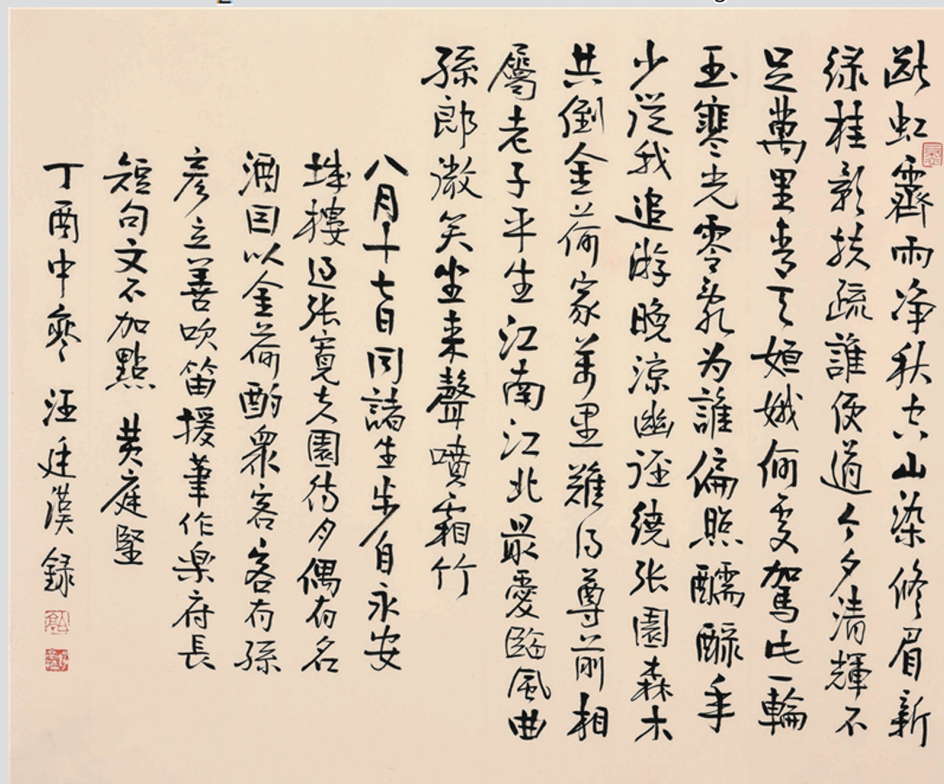 斷虹霽雨净秋空山染修眉新
緑桂影扶疏誰便道今夕清輝不
足萬里青天姮娥何處駕此一輪
玉寒光零亂为誰偏照醽醁年
少從我追游晚涼幽徑繞张園森木
共倒金荷家萬里難得尊前相
屬老子平生江南江北最愛臨風曲
孫郎微笑坐来聲噴霜竹
八月十七日同諸生步自永安
城樓過张寬夫園待月偶有名
酒因以金荷酌衆客客有孫
彦立善吹笛援筆作楽府長
短句文不加點 黄庭堅
丁酉中秋 汪廷漢録